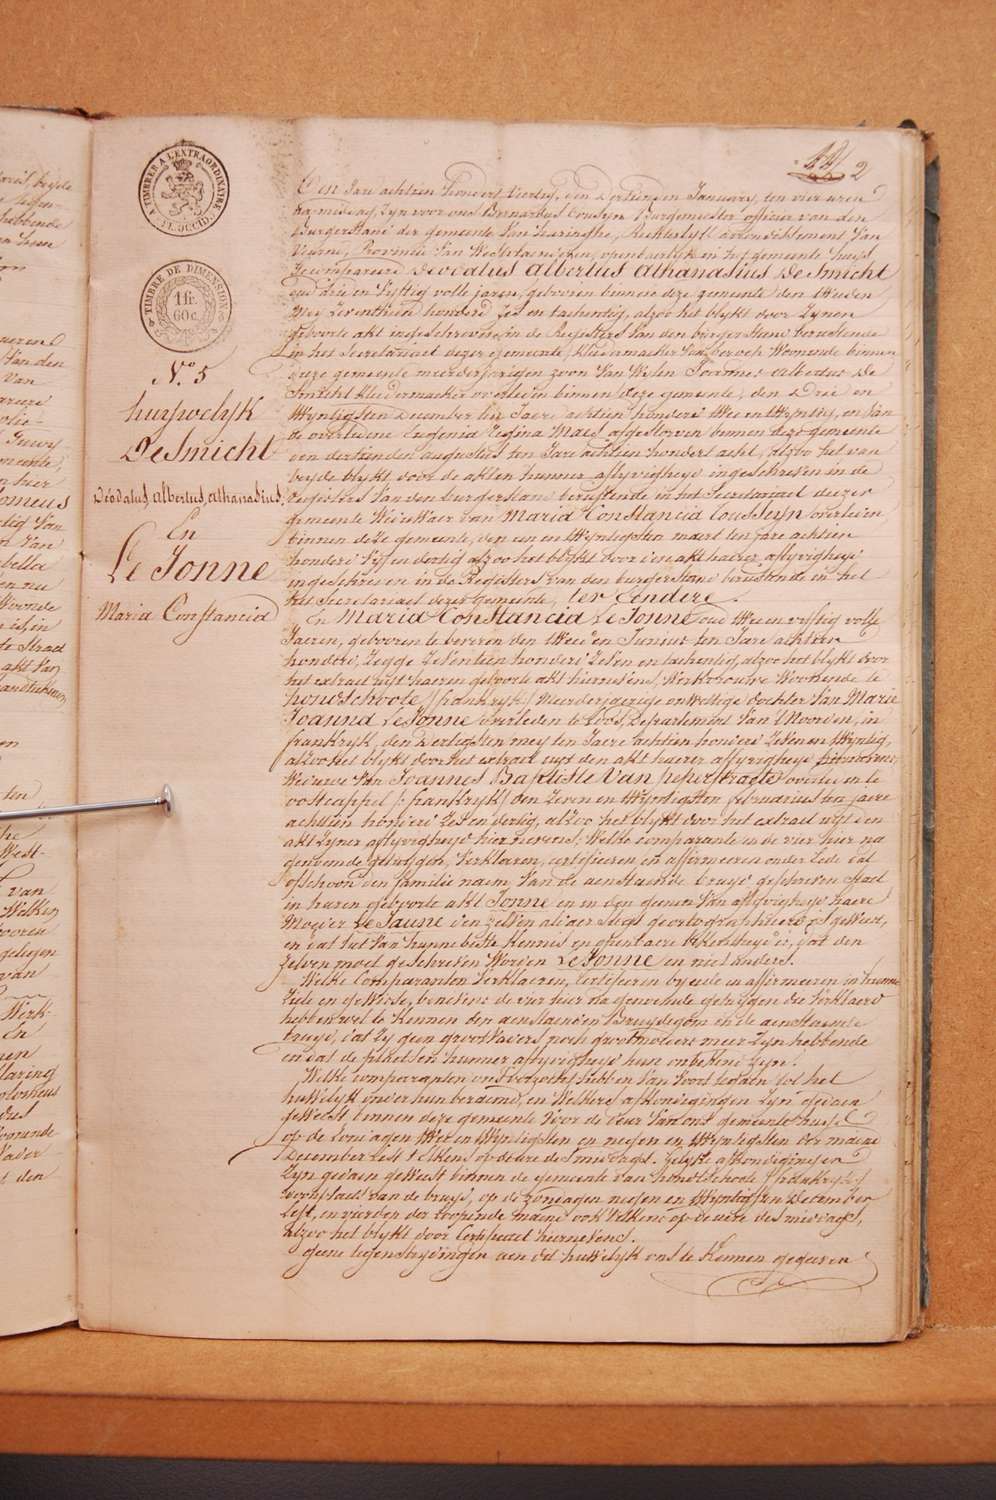 2
A TIMBRER A L'EXTRAORDINAIRE
TIMBRE DE DIMENSION
1 fr. 60 c.
N.º 5
huywelyk
DeSmicht
Déodatus, albertus, athanasius,
En
Le Jonne
Maria Constancia
Een Jare achtien honderd veertig, den dertienen January, ten vier uren
na middag, Zyn voor ons Bernardus Cousyn Burgemeester officier van den
Burgerstand der gemeente Van haringhe, arrondissement Van
Veurne, Provincie Van West Vlaenderen, openbaerlyk in het gemeente huys
Gecompareerd Deodatus albertus athanasius DeSmicht
oud drie en vyftig volle jaren, gebooren binnen deze gemeente den tweeden
Mey Zeventhien honderd Zes en tachentig, alzoo het blykt door Zynen
Geboorte akt ingeschreven in de Registers Van den burgerstand berustende
in het Secretariaet dezer gemeente, kleedermaker Van beroep Woonende binnen
deze gemeente meerderjarigen zoon Van Wylen Joannes albertus De
Smicht kleedermaker overleden binnen deze gemeente, den Drie en
twyntigsten December ten Jaere achtien honderd twee en twyntig, en Van
de overledene Eugenia Regina Maes afgestorven binnen deze gemeente
den derthienden augustus ten Jare achtien honderd acht, alzoo het van
beyde blykt door de akten hunner aflyvigheyd ingeschreven in de
Registers Van den burgerstand berustende in het Secretariaet dezer
gemeente Weduwaer van Maria Constancia Cousseyn overleden
binnen deze gemeente, den een en twyntigsten maert ten Jare achtien
honderd vyf en dertig alzoo het blykt door den akt haerer aflyvigheyd
ingeschreven in de Registers van den burgerstand berustende in het
het Secretariaet dezer gemeente, ter Eendere.
En Maria Constancia Le Jonne oud twee en vyftig volle
Jaeren, gebooren te beveren den tweeden Junius ten Jare achtien
honderd, Zegge Zeventien honderd Zeven en tachentig, alzoo het blykt door
het extract uyt haeren geboorte akt hiernevens, Werkvrouwe Woonende te
hondschoote /frankryk/ Meerderjarige onwettige dochter Van Marie
Joanna LeJonne overleden te Loos, departement Van 't Noorden, in
frankryk, den dertigsten mey ten Jaere achtien honderd Zeven en twyntig,
alzoo het blykt door het extract uyt den akt haerer aflyvigheyd hiernevens,
Weduwe Van Joannes Baptiste Van peperstraete overleden te
oostcappel /: frankryk / den Zeven en twyntigsten february ten jaere
achtien honderd Zes en dertig, alzoo het blykt door het extract uyt den
akt Zyner aflyvigheyd hiernevens; Welke comparanten en de vier hier na
genoemde getuygen, Verklaren, certifieeren, en affirmeeren onder Eede dat
ofschoon den familie naem, Van de aenstaende bruyd geschreven staet
in haren geboorte akt Jonne en in den genen Van aflyvigheyd haere
Moeder Le Jaune den zelven aldaer slegt georthographieerd is geweest,
en dat het Van hunne beste kennis en openbaere bekentheyd is, dat den
Zelven moet geschreven Worden Le Jonne en niet anders.
Welke Comparanten Verklaeren, Certifieeren by eede en affirmeeren in hunne
Ziele en gewisse, benevens de vier hier na genoemde getuygen die Verklaeren
hebben wel te kennen den aenstaenden Bruydegom en de aenstaende
bruyd, dat Zy geen grootvaders noch grootmoeders meer Zyn hebbende
en dat de plaetsen hunner aflyvigheyd hun onbekend Zyn.
Welke comparanten ons Verzocht hebben Van Voort te daen tot het
huwelyk onder hun beraemd, en Welkers afkondigingen Zyn gedaen
geweest binnen deze gemeente Voor de deur Van ons gemeente huys
op de Zondagen twee en twyntigsten en negen en twyntigsten der maend
December lest telkens op de ure des middags. Gelyke afkondigingen
Zyn gedaen geweest binnen de gemeente van hondschoote /frankryk/
Woonstad van de bruyd, op de Zondagen negen en twyntigsten December
lest, en vierden der loopende maend ook telkens op de ure des middags,
alzoo het blykt door Certificaet hiernevens.
geene tegenstrydingen aen dit huwelyk ons te kennen gegeven